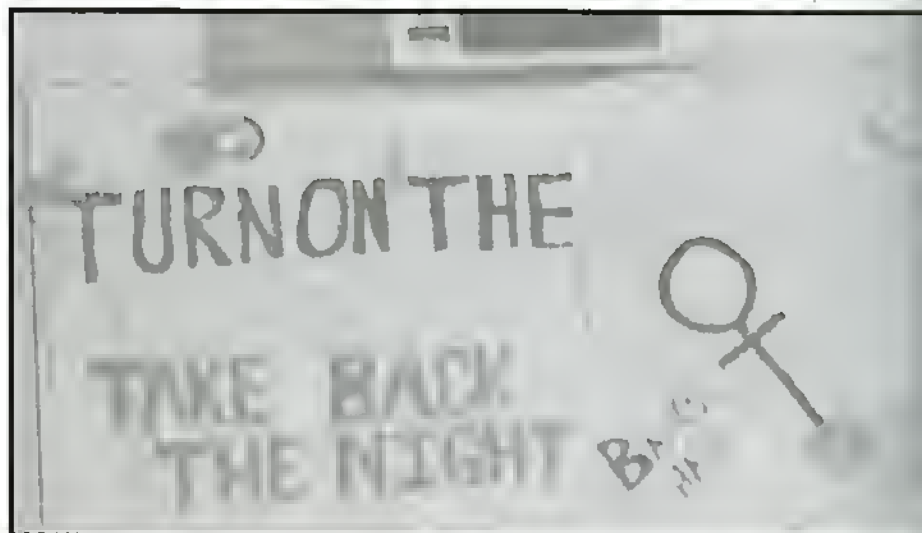 TURN ON THE
TAKE BACK
THE NIGHT